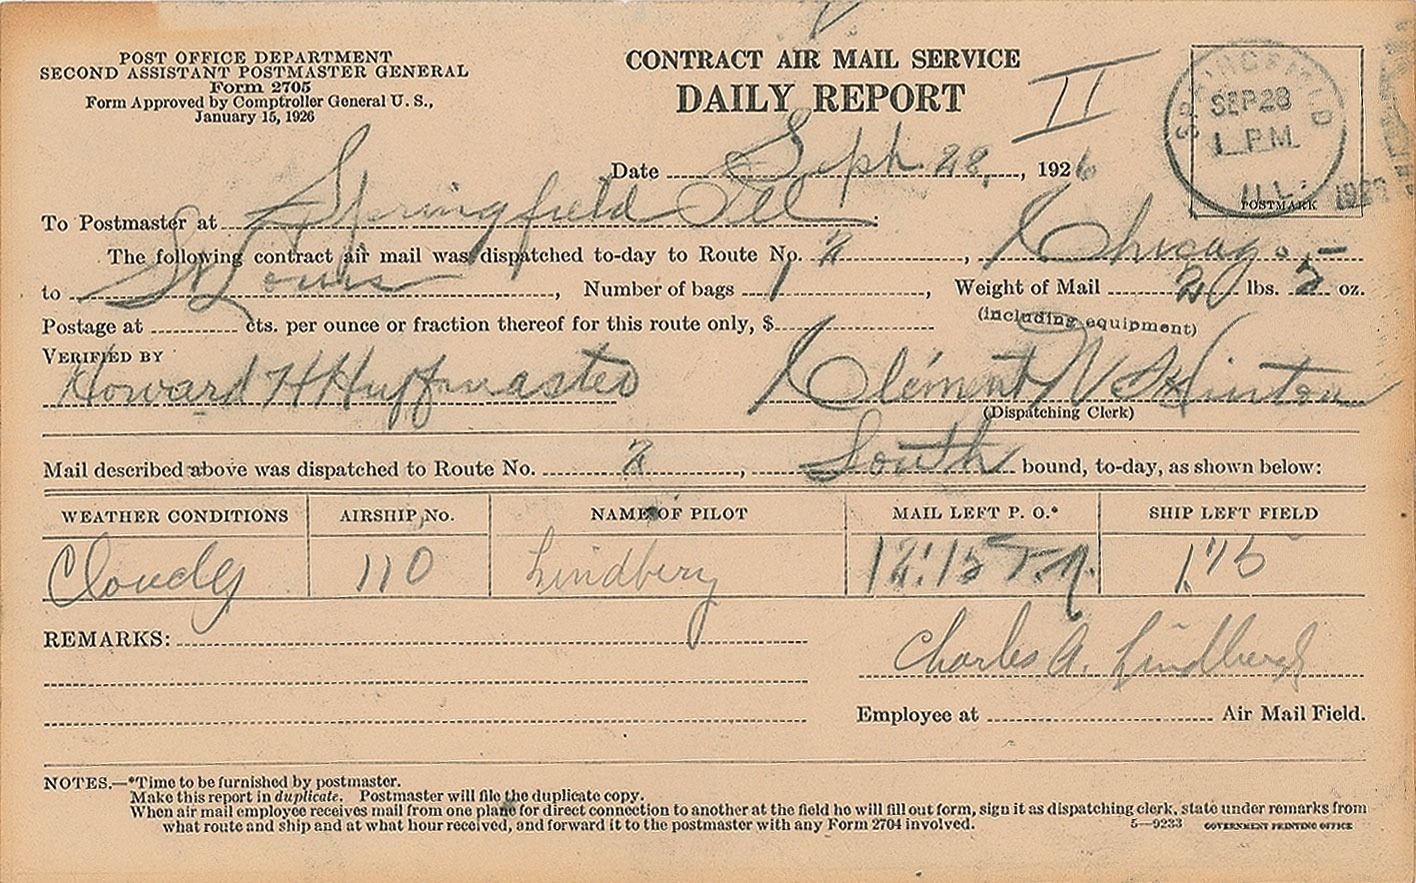 POST OFFICE DEPARTMENT
SECOND ASSISTANT POSTMASTER GENERAL
Form 2705
Form Approved by Comptroller General U. S.,
January 15, 1926
CONTRACT AIR MAIL SERVICE
DAILY REPORT
II
SPRINGFIELD
SEP 28
1 PM
ILL.
POSTMARK
Date Sept. 28, 1926
To Postmaster at Springfield Ill
The following contract air mail was dispatched to-day to Route No. 2, Chicago -
to St Louis, Number of bags 1, Weight of Mail 2 lbs. 2 oz.
(including equipment)
Postage at cts. per ounce or fraction thereof for this route only, $
VERIFIED BY
Howard H Huffmaster Clement
(Dispatching Clerk)
Mail described above was dispatched to Route No. 2, South bound, to-day, as shown below:
WEATHER CONDITIONS AIRSHIP No. NAME OF PILOT MAIL LEFT P. O.* SHIP LEFT FIELD
Cloudy 110 Lindberg 12:15 P.M.
REMARKS:
Charles A. Lindbergh
Employee at Air Mail Field.
NOTES.—*Time to be furnished by postmaster.
Make this report in duplicate. Postmaster will file the duplicate copy.
When air mail employee receives mail from one plane for direct connection to another at the field he will fill out form, sign it as dispatching clerk, state under remarks from
what route and ship and at what hour received, and forward it to the postmaster with any Form 2704 involved.
5—9233 GOVERNMENT PRINTING OFFICE